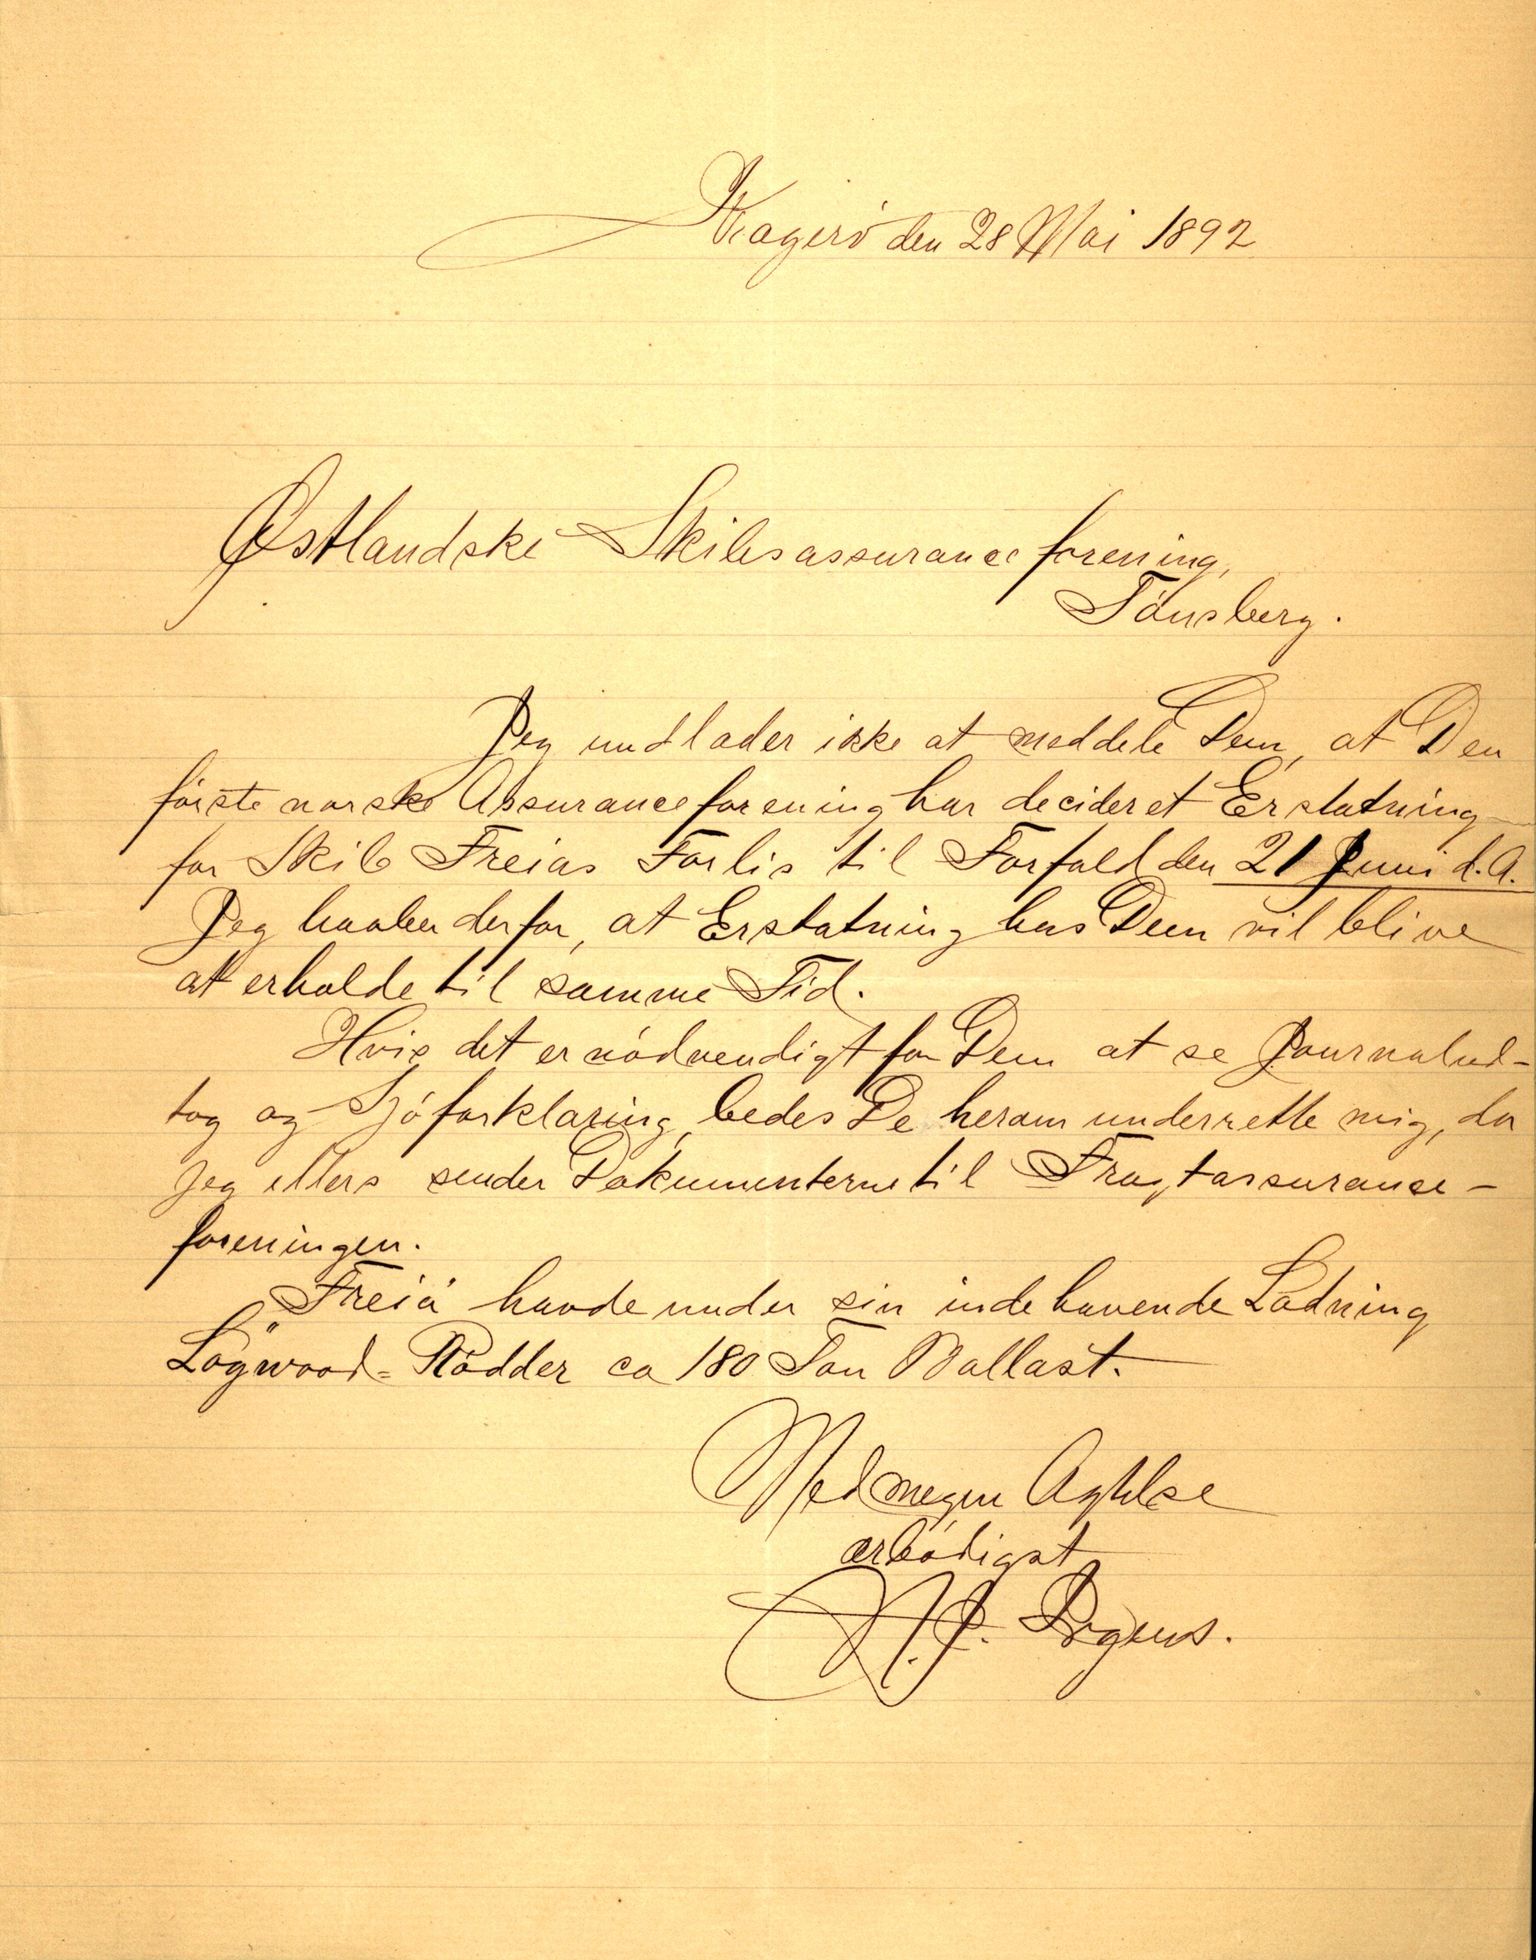 Kragerö den 28 Mai 1892
Østlandske Skibsassuranceforening,
Tönsberg.
Jeg undlader ikke at meddele Dem, at Den
förste norske Assuranceforening har decideret Erstatning
for Skib Freias Forlis til Forfald den 21 Juni d. A.
Jeg haaber derfor, at Erstatning hos Dem vil blive
at erholde til samme Tid.
Hvis det er nödvendigt for Dem at se Journalud-
tog og Sjöforklaring, bedes De herom underrette mig, da
jeg ellers sender Dokumenterne til Fragtassurance-
foreningen.
"Freia" havde under sin indehavende Ladning
Logwood-Rödder ca 180 Ton Ballast.
Med megen Agtelse
ærbödigst